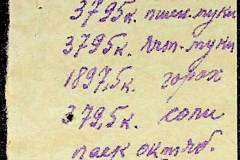 3795к. пшен. муки
3795к. ячм. муки
1897,5к. горох
379,5к. соли
паек октяб.